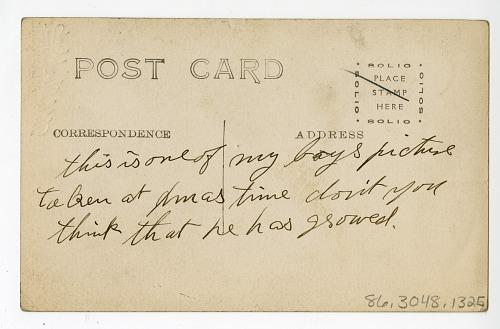 POST CARD
SOLIO
SOLIO PLACE STAMP HERE SOLIO
SOLIO
CORRESPONDENCE ADDRESS
this is one of my boys picture
taken at xmas time don't you
think that he has growed.
86.3048.1325